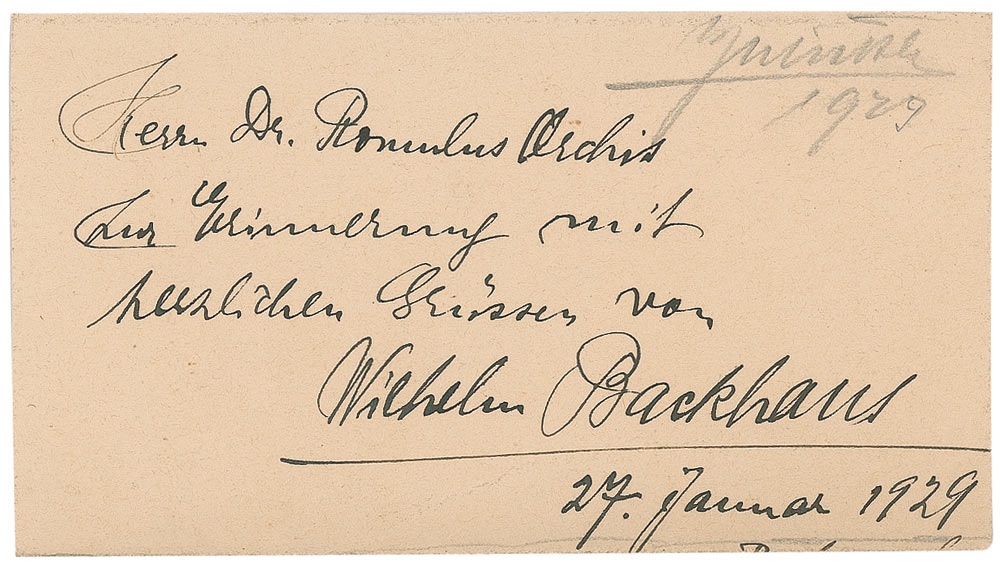 1929
Herrn Dr. Romulus Orchis
zur Erinnerung mit
herzlichen Grüssen von
Wilhelm Backhaus
27. Januar 1929